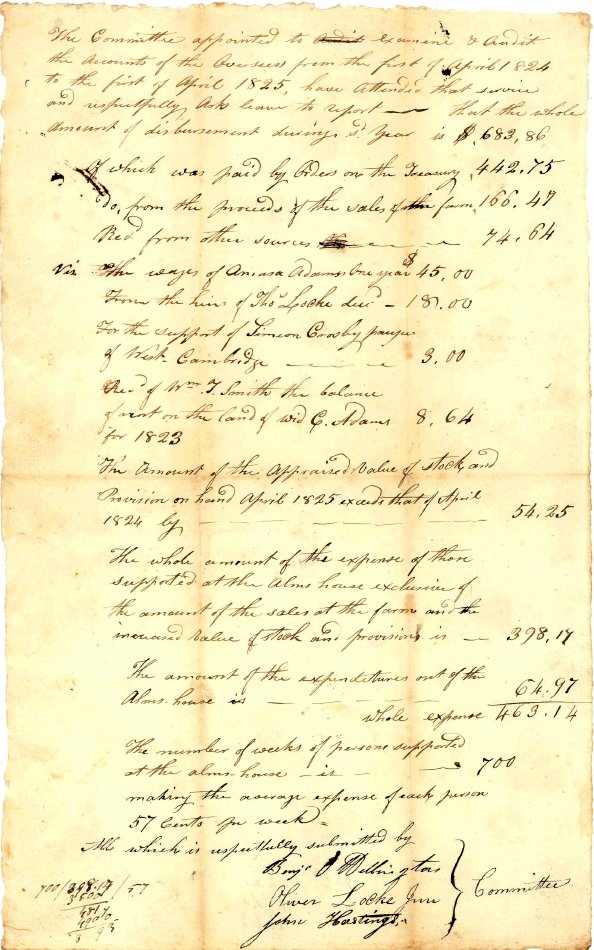 The Committee appointed to Audit examine & Audit
the Amounts of the Overseers from the first of April 1824
to the first of April 1825, have Attended that service
and respectfully Ask leave to report — that the whole
Amount of disbursement during sd Year is $683,86
Of which was paid by Orders on the Treasury 442.75
do. from the proceeds of the sales of the farm 166.47
Recd from other sources — — — 74.64
Viz The wages of Amasa Adams One year $45,00
From the heirs of Thos Locke decd — 18.00
For the support of Simeon Crosby pauper
of West Cambridge — — — 3.00
Recd of Wm J. Smith the balance
of rent on the land of wid C. Adams 8,64
for 1823
The Amount of the Appraised Value of stock and
Provision on hand April 1825 exceeds that of April
1824 by — — — — — — 54.25
The whole amount of the expense of those
supported at the Alms house exclusive of
the amount of the sales at the farm and the
increased Value of stock and provisions is — 398.17
The amount of the expenditures out of the
Alms house is — — — — 64.97
whole expense 463.14
The number of weeks of persons supported
at the alms-house — is — — 700
making the average expense of each person
57 Cents pr week
All which is respectfully submitted by
Benjn O Wellington
Oliver Locke Junr
John Hastings
Committee
700/398.17/57
3500
4817
4900